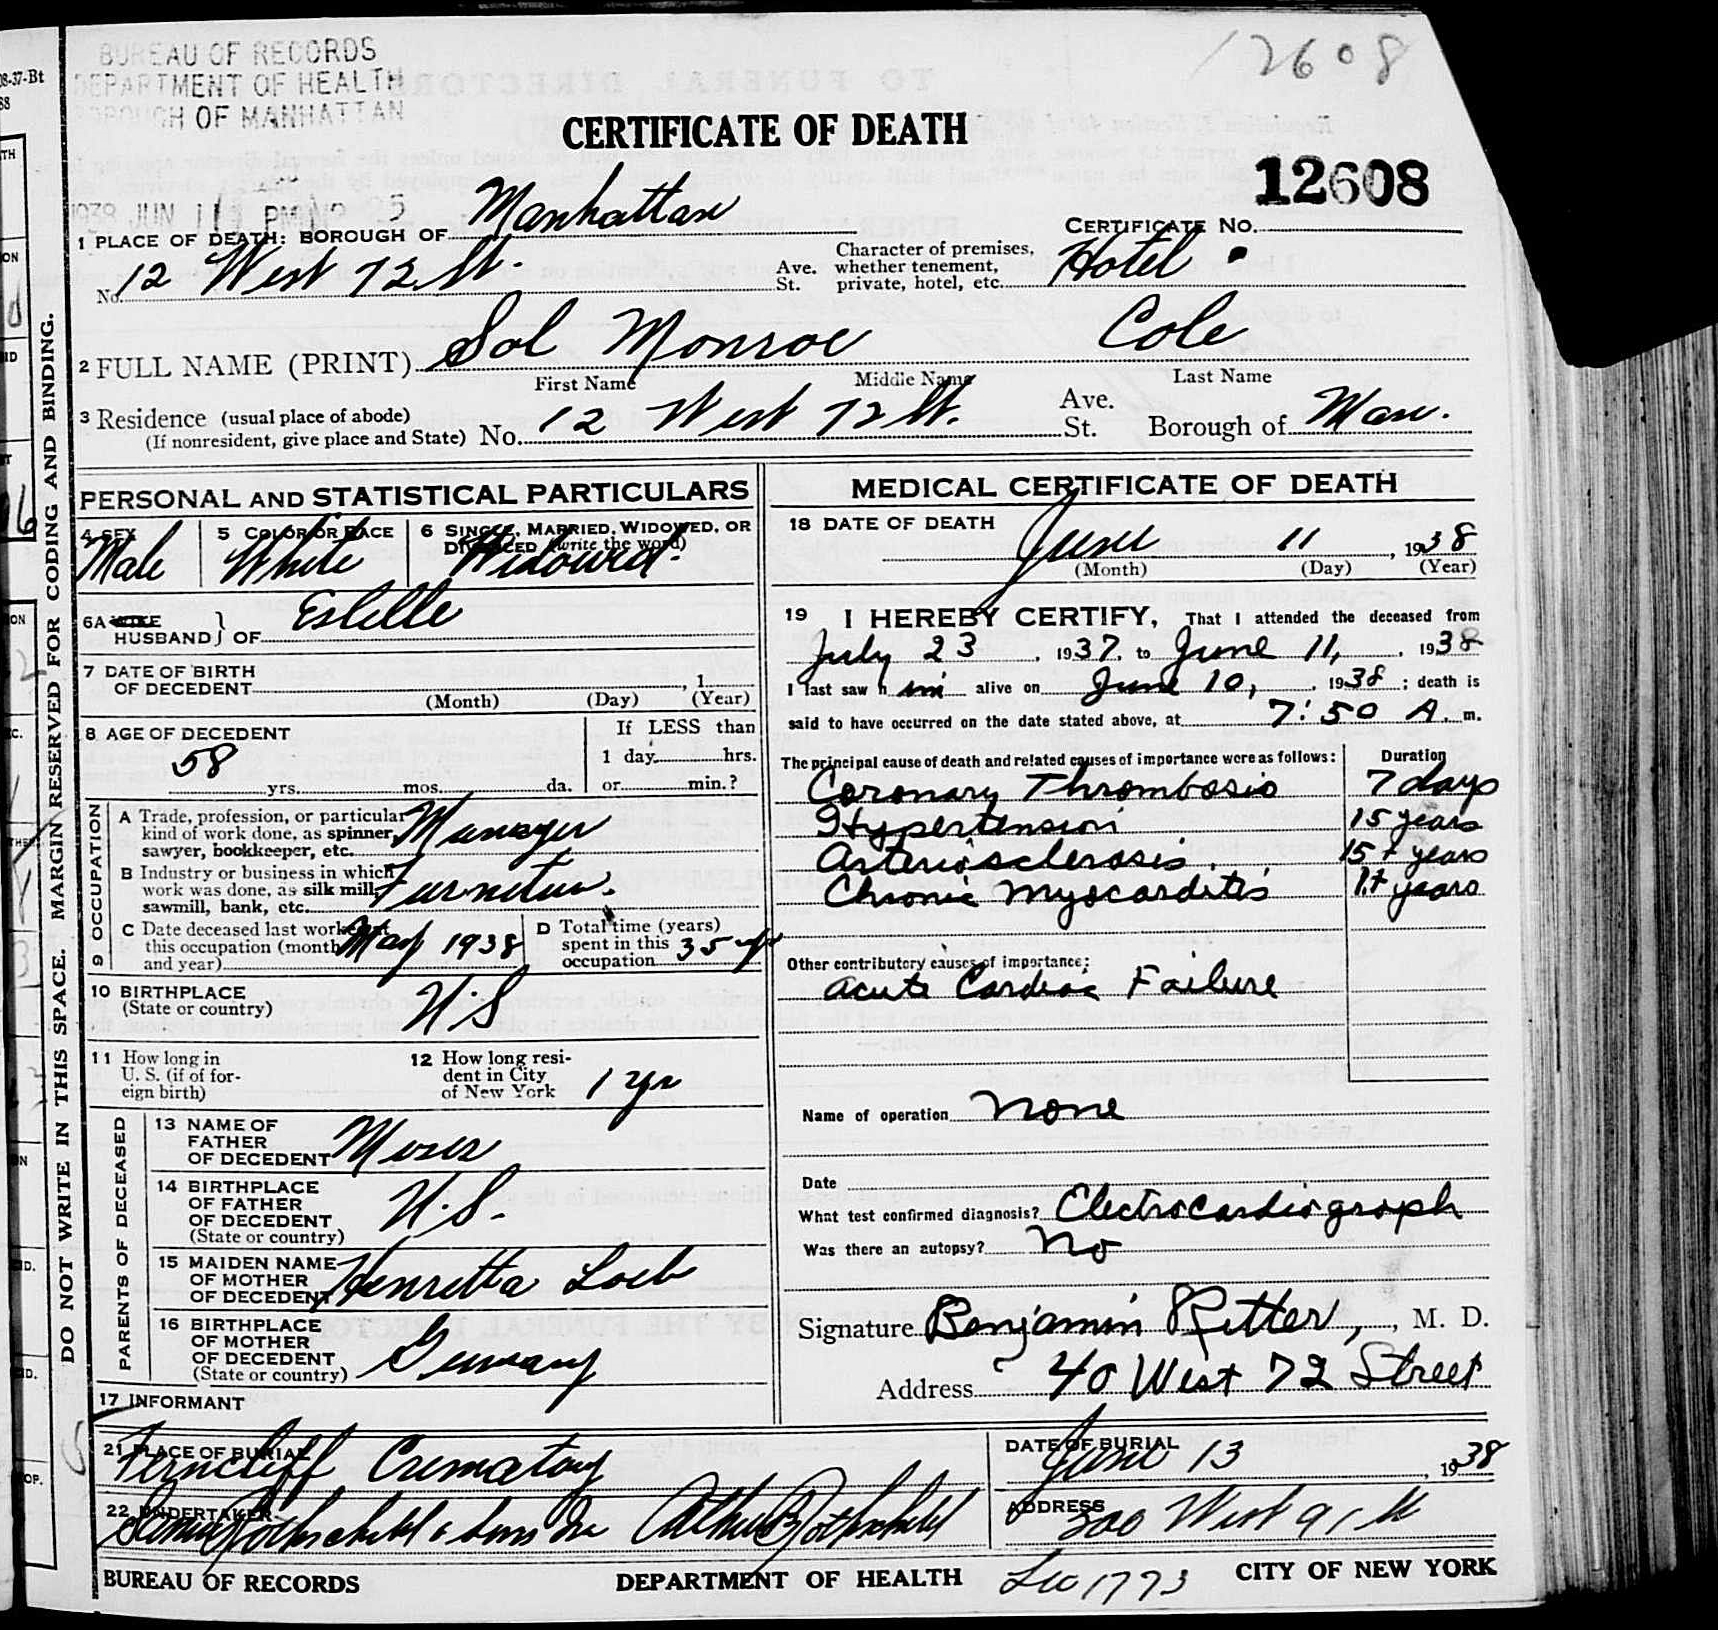 12608
BUREAU OF RECORDS
DEPARTMENT OF HEALTH
BOROUGH OF MANHATTAN
CERTIFICATE OF DEATH
12608
1938 JUN 11 PM
1 PLACE OF DEATH: BOROUGH OF Manhattan
CERTIFICATE NO.
No. 12 West 72 St. Ave. St.
Character of premises, whether tenement, private, hotel, etc. Hotel
2 FULL NAME (PRINT) Sol Monroe Cole
First Name Middle Name Last Name
3 Residence (usual place of abode)
(If nonresident, give place and State) No. 12 West 72 St. Ave. St. Borough of Man.
DO NOT WRITE IN THIS SPACE. MARGIN RESERVED FOR CODING AND BINDING.
PERSONAL AND STATISTICAL PARTICULARS
4 SEX Male
5 COLOR OR RACE White
6 SINGLE, MARRIED, WIDOWED, OR DIVORCED (write the word) Widowed.
6A WIFE HUSBAND } OF Estelle
7 DATE OF BIRTH OF DECEDENT , 1
(Month) (Day) (Year)
8 AGE OF DECEDENT
58 yrs. mos. da.
If LESS than
1 day hrs.
or min.?
9 OCCUPATION
A Trade, profession, or particular kind of work done, as spinner, sawyer, bookkeeper, etc. Manager
B Industry or business in which work was done, as silk mill, sawmill, bank, etc. Furniture.
C Date deceased last worked at this occupation (month and year) May 1938
D Total time (years) spent in this occupation 35 yr
10 BIRTHPLACE (State or country) U.S
11 How long in U. S. (if of foreign birth)
12 How long resident in City of New York 1 yr
PARENTS OF DECEASED
13 NAME OF FATHER OF DECEDENT Moses
14 BIRTHPLACE OF FATHER OF DECEDENT (State or country) U.S.
15 MAIDEN NAME OF MOTHER OF DECEDENT Henretta Loeb
16 BIRTHPLACE OF MOTHER OF DECEDENT (State or country) Germany
17 INFORMANT
MEDICAL CERTIFICATE OF DEATH
18 DATE OF DEATH June 11, 1938
(Month) (Day) (Year)
19 I HEREBY CERTIFY, That I attended the deceased from
July 23, 1937, to June 11, 1938
I last saw him alive on June 10, 1938; death is
said to have occurred on the date stated above, at 7:50 A. m.
The principal cause of death and related causes of importance were as follows: Duration
Coronary Thrombosis 7 days
Hypertension 15 years
Arteriosclerosis. 15 + years
Chronic Myocarditis 1+ years
Other contributory causes of importance:
Acute Cardiac Failure
Name of operation None
Date
What test confirmed diagnosis? Electrocardiograph
Was there an autopsy? No
Signature Benjamin Ritter, M. D.
Address 40 West 72 Street
21 PLACE OF BURIAL Ferncliff Crematory
DATE OF BURIAL June 13 1938
22 UNDERTAKER Rothschild & Sons Inc Rothschild
ADDRESS 200 West 91 St
BUREAU OF RECORDS DEPARTMENT OF HEALTH CITY OF NEW YORK
Lic 1773